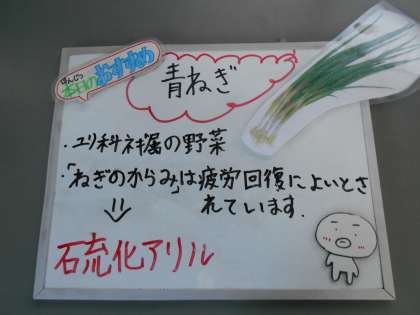 ほんじつ
本日のおすすめ
青ねぎ
・ユリ科ネギ属の野菜
・「ねぎのからみ」は疲労回復によいとさ
れています.
⇓
硫化アリル